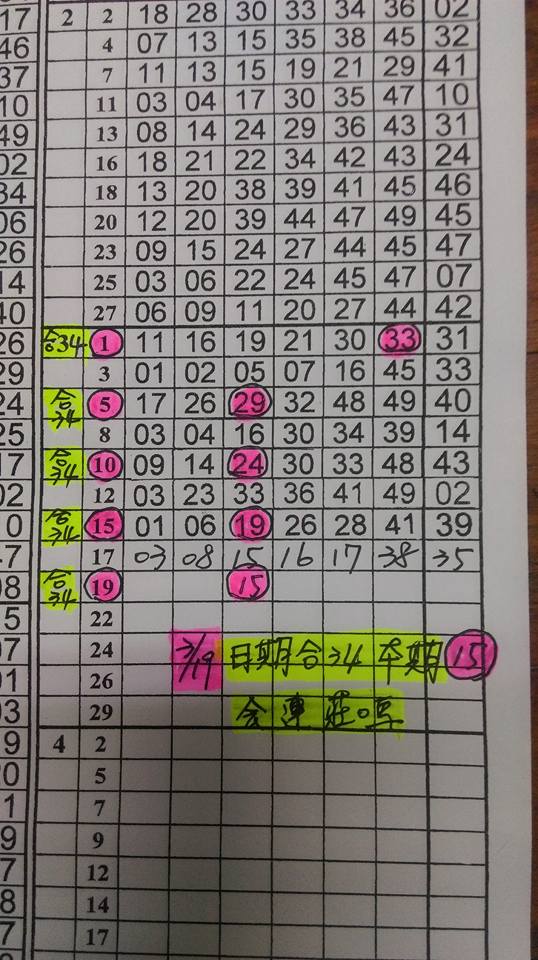 17 2 2 18 28 30 33 34 36 02
46 4 07 13 15 35 38 45 32
37 7 11 13 15 19 21 29 41
10 11 03 04 17 30 35 47 10
49 13 08 14 24 29 36 43 31
02 16 18 21 22 34 42 43 24
34 18 13 20 38 39 41 45 46
06 20 12 20 39 44 47 49 45
26 23 09 15 24 27 44 45 47
14 25 03 06 22 24 45 47 07
40 27 06 09 11 20 27 44 42
26 合34 1 11 16 19 21 30 33 31
29 3 01 02 05 07 16 45 33
24 合34 5 17 26 29 32 48 49 40
25 8 03 04 16 30 34 39 14
17 合34 10 09 14 24 30 33 48 43
02 12 03 23 33 36 41 49 02
0 合34 15 01 06 19 26 28 41 39
7 17 03 08 15 16 17 38 35
08 合34 19 15
5 22
07 24 3/19 日期合34 本期 15
01 26
03 29 会連莊
9 4 2
20 5
1 7
9 9
7 12
8 14
7 17